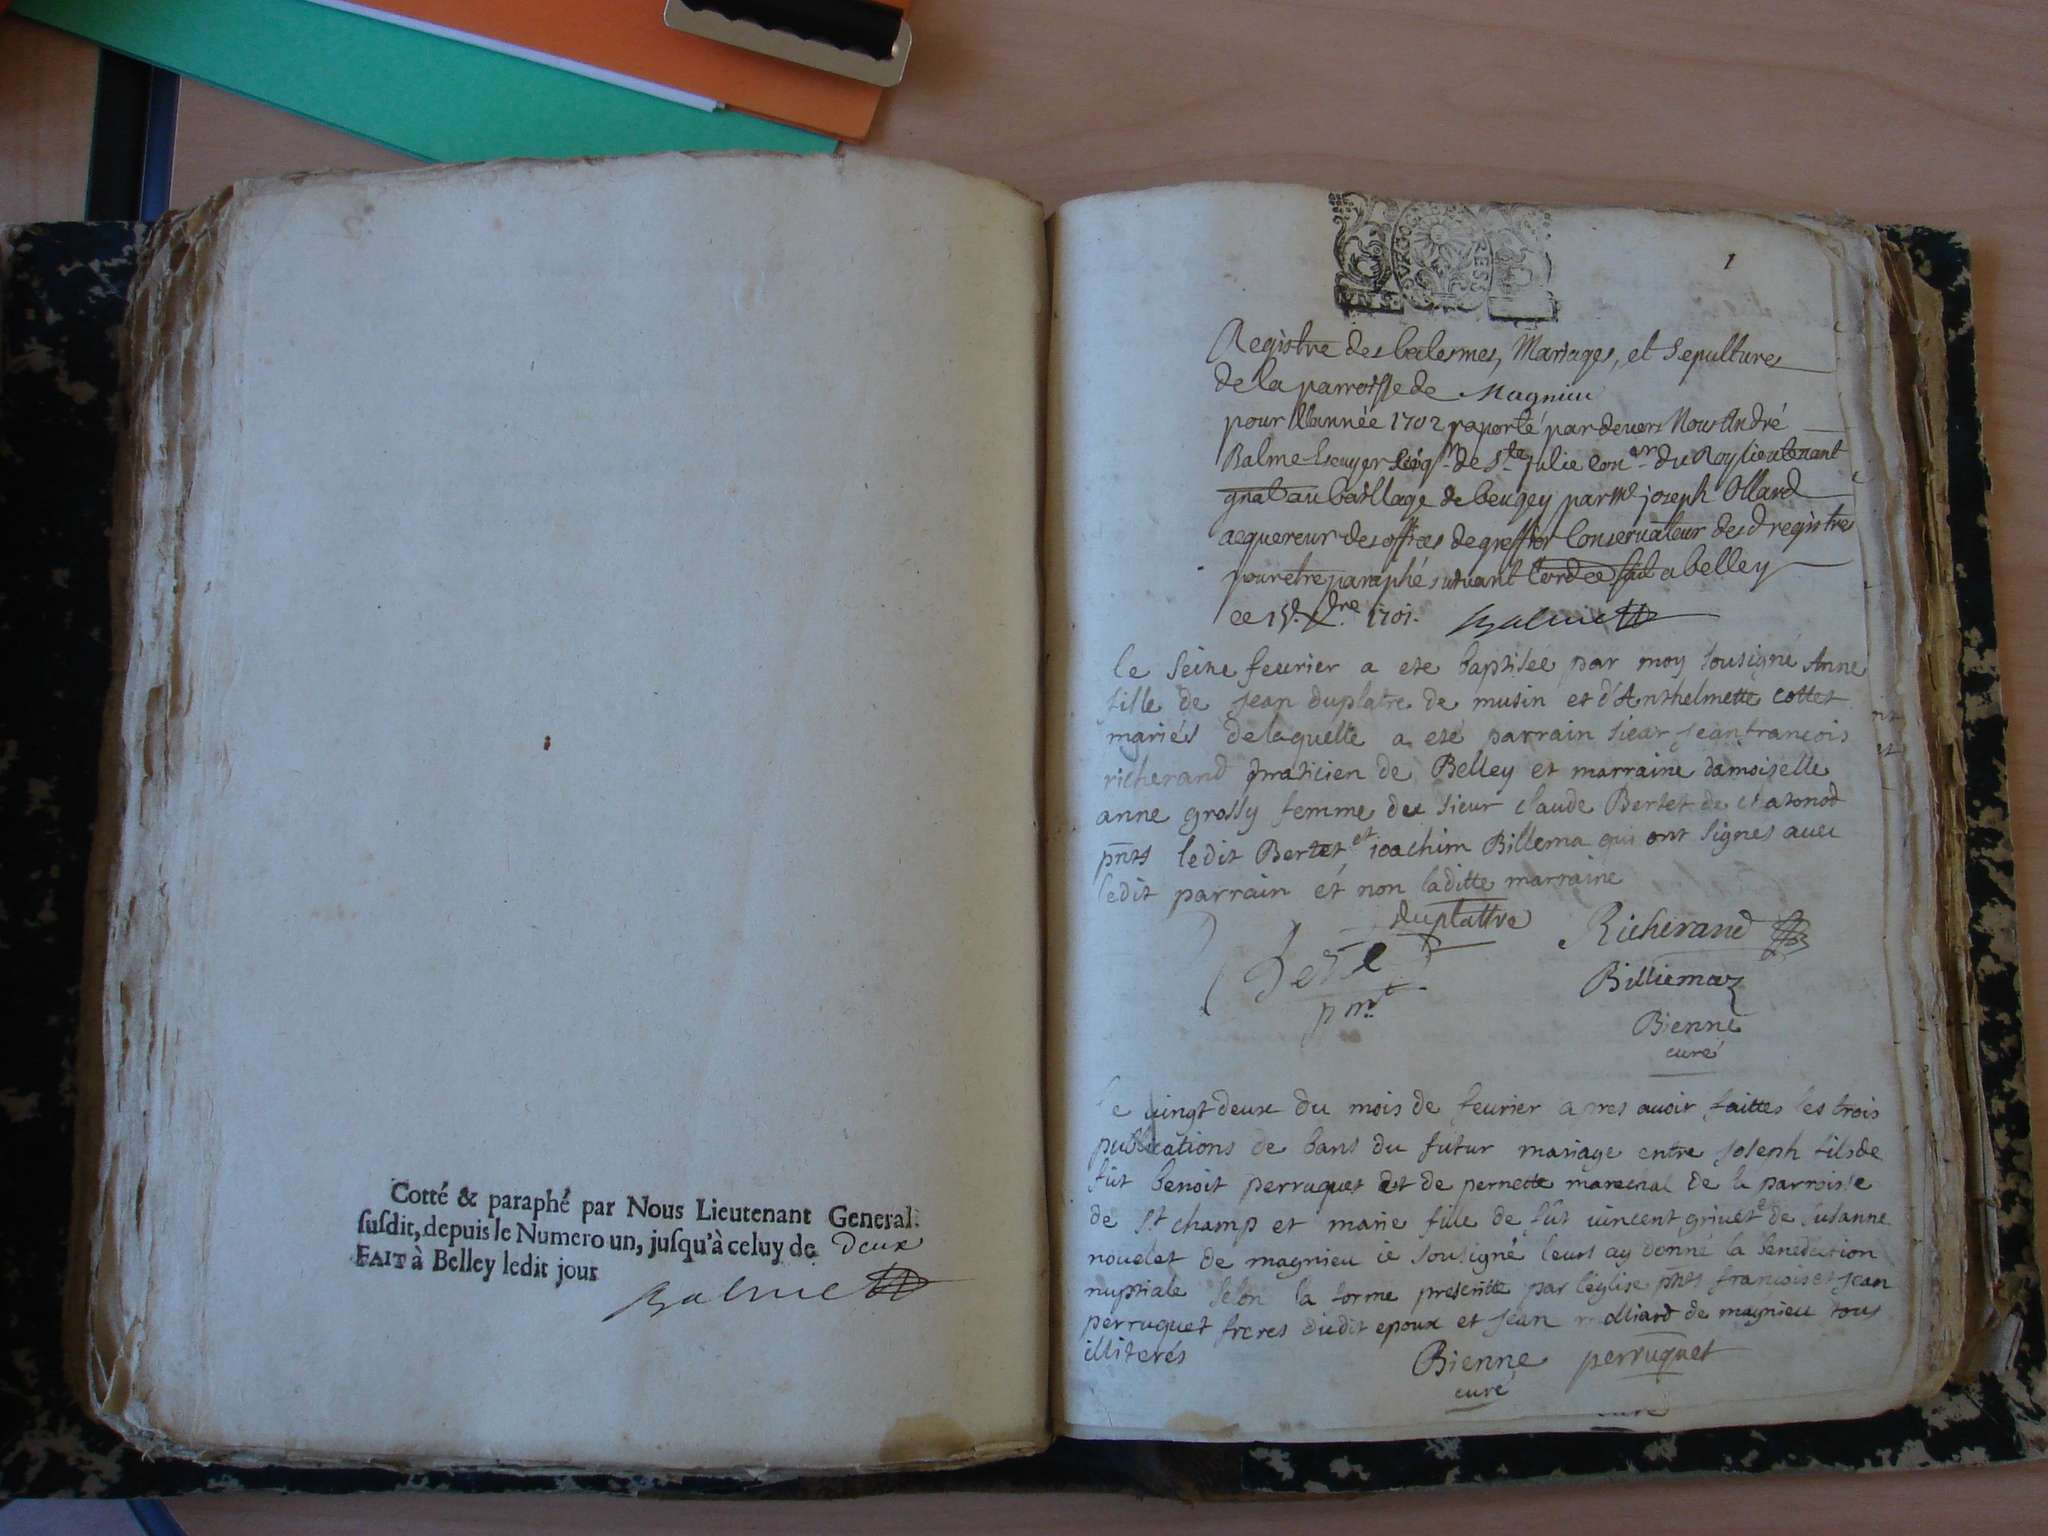 Cotté & paraphé par Nous Lieutenant General
susdit, depuis le Numero un, jusqu'à celuy de deux
FAIT à Belley ledit jour
Balme
1
Registre des batesmes, Mariages, et Sepultures
de la parroisse de Magnieu
pour l'année 1702 raporté pardevers Nous André
Balme Escuyer Seigr de Ste Julie Coner du Roy lieutenant
gnal au baillage de beugey par Me joseph Ollard
acquereur des offices de greffier Conservateur desd registres
pour etre paraphé suivant lord ce fait a belley
ce 15e Xbre 1701. Balme
le seize feurier a ete baptisée par moy sousigné Anne
fille de jean duplatre de musin et d'Anthelmette cottet
mariés de laquelle a ete parrain sieur jean francois
richerand praticien de Belley et marraine damoiselle
anne grossy femme du sieur claude Bertet de chatonod
pnts ledit Bertet et ioachim Billema qui ont signes avec
ledit parrain et non laditte marraine
duplattre Richerand
Billiemaz
pnt
Bienne
curé
le uingt deux du mois de feurier apres auoir faittes les trois
publications de bans du futur mariage entre joseph fils de
fût benoit perruquet et de pernette marechal de la parroisse
de st champ et marie fille de fût uincent griuet et de susanne
nouelet de magnieu ie sousigné leurs ay donné la benediction
nuptiale selon la forme prescritte par l'église pnts francois et jean
perruquet freres dudit epoux et jean molliard de magnieu tous
illiterés
Bienne perruquet
curé